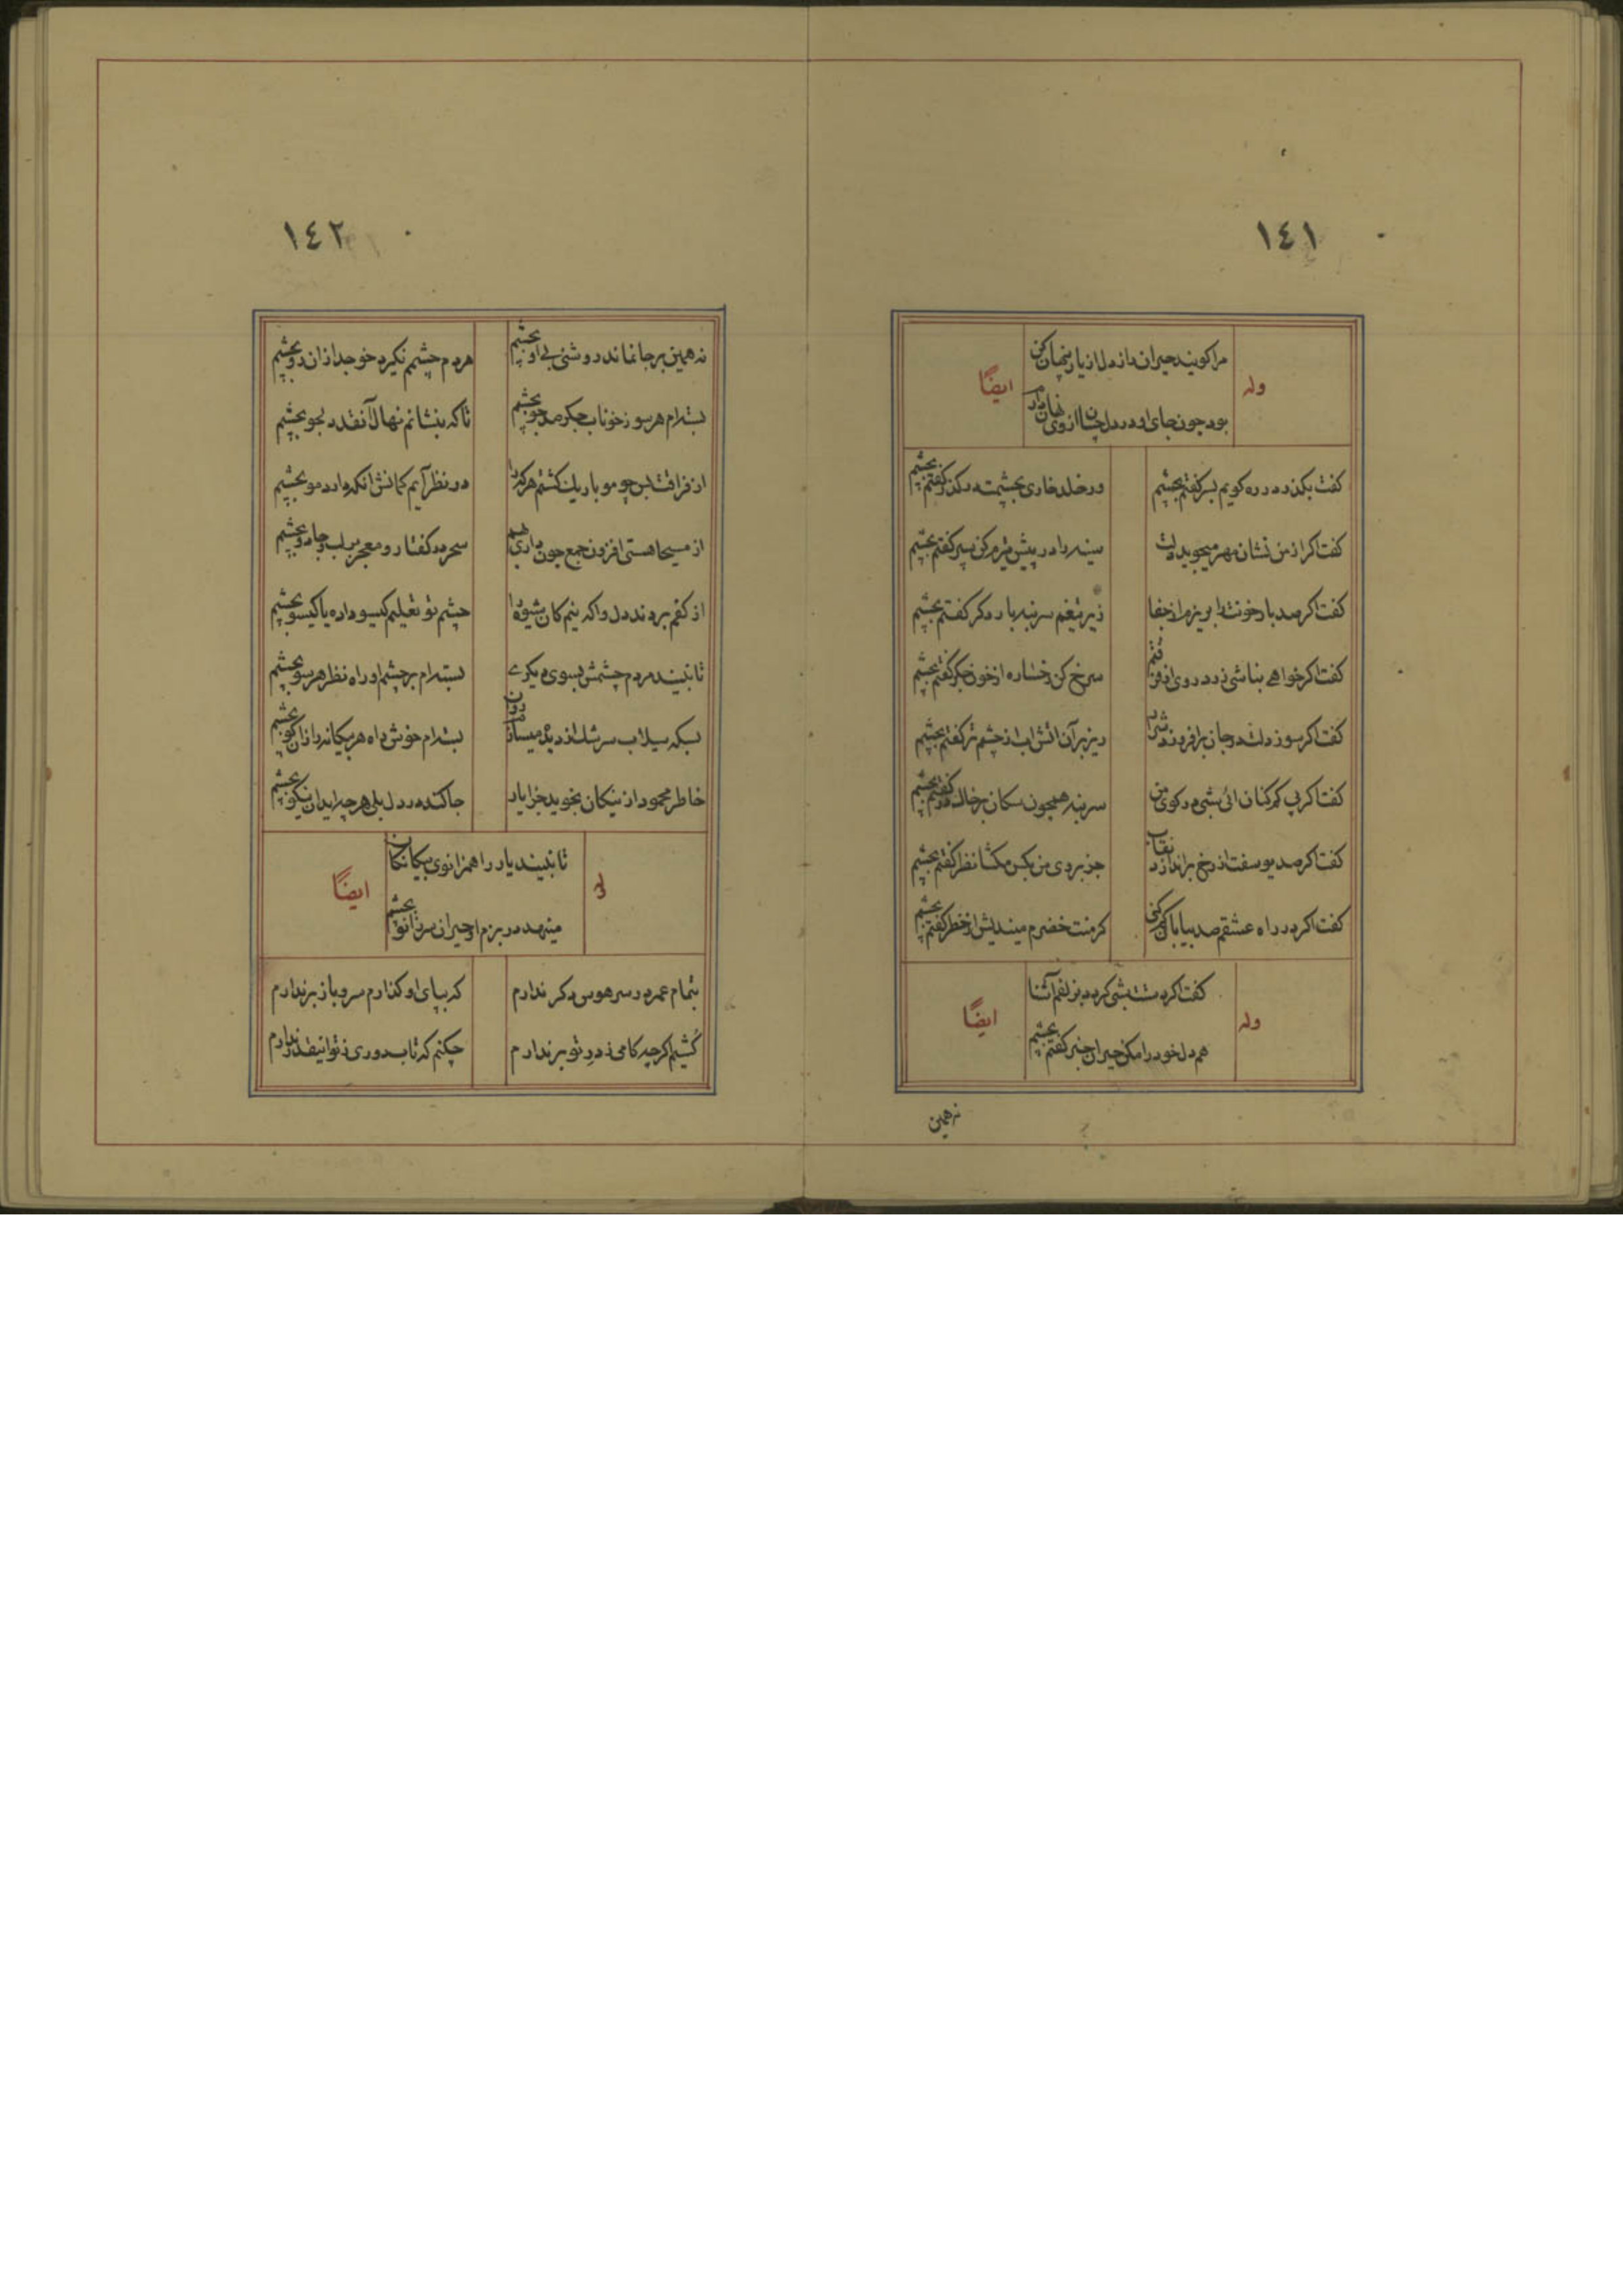 ١٤١
وله
مرا کویند حیران راز دل از یار پنهان کن
ایضًا
بود چون جای او در دل چسان از وی نهان دارم
کفت بکذر در ره کویم بسر کفتم بچشم
ور خلد خاری بچشمت در کذر کفتم بچشم
کفت اکر از من نشان مهر میجوید دلت
سینه را در پیش تیرم کن سپر کفتم بچشم
کفت اکر صد بار خونت را بریزم از جفا
زیر تیغم سر بنه بار دکر کفتم بچشم
کفت اکر خواهی نباشی زرد روی از فرقتم
سرخ کن رخساره از خون جکر کفتم بچشم
کفت اکر سوز دلت در جان برافروزد شرار
ریز بر آن اتش اب از چشم تر کفتم بچشم
کفت اکر پی کم کنان ائی بشی در کوی من
سر بنه همچون سکان بر خاک در کفتم بچشم
کفت اکر صد یوسفت از رخ براندازد نقاب
جز بروی من بکس مکشا نظر کفتم بچشم
کفت اکر در راه عشقم صد بیابان کم کنی
کر منت خضرم میندیش از خطر کفتم بچشم
وله
کفت اکر دستت بشی کردد بزلفم آشنا
ایضًا
هم دل خود را مکن حیران خبر کفتم بچشم
نه همین
١٤٢
نه همین بر جا نماند روشنی بی او بچشم
مردم چشمم نکیرد خو جدا از ان رو بچشم
بسته‌ام هر سو ز خوناب جکر صد جو بچشم
تا که بنشانم نهال آنقد دلجو بچشم
از فراقت بس چو مو باریک کشتم هر که را
در نظر آیم کمانش آنکه دارد مو بچشم
از مسیحا هستی افزون جمع چون داری بهم
سحر در کفتار و معجز بر لب و جادو بچشم
از کفم بردند دل واکه نیم کان شیوه را
چشم تو تعلیم کیسو داده یا کیسو بچشم
تا نبیند مردم چشمش بسوی دیکری
بسته‌ام بر چشم او راه نظر هر سو بچشم
بسکه سیلاب سرشک از دیده میسازد روان
بسته‌ام خوش راه هر بیکانه را زان کو بچشم
خاطر محمود از نیکان نجوید جز ایاز
جا کند در دل بلی هر چه اید ان نیکو بچشم
له
تا نبیند یار را همزانوی بیکانکان
ایضًا
مینهد در بزم او حیران سر زانو بچشم
بتمام عمر در سر هوس دکر ندارم
که بپای او کذارم سر و باز بر ندارم
کُشیم اکرچه کامی ز در تو بر ندارم
چکنم که تاب دوری ز تو اینقدر ندارم